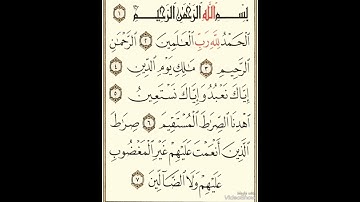 بِسْمِ اللَّهِ الرَّحْمَٰنِ الرَّحِيمِ ١
الْحَمْدُ لِلَّهِ رَبِّ الْعَالَمِينَ ٢ الرَّحْمَٰنِ
الرَّحِيمِ ٣ مَالِكِ يَوْمِ الدِّينِ ٤
إِيَّاكَ نَعْبُدُ وَإِيَّاكَ نَسْتَعِينُ ٥
اهْدِنَا الصِّرَاطَ الْمُسْتَقِيمَ ٦ صِرَاطَ
الَّذِينَ أَنْعَمْتَ عَلَيْهِمْ غَيْرِ الْمَغْضُوبِ
عَلَيْهِمْ وَلَا الضَّالِّينَ ٧
Made with
VideoShow